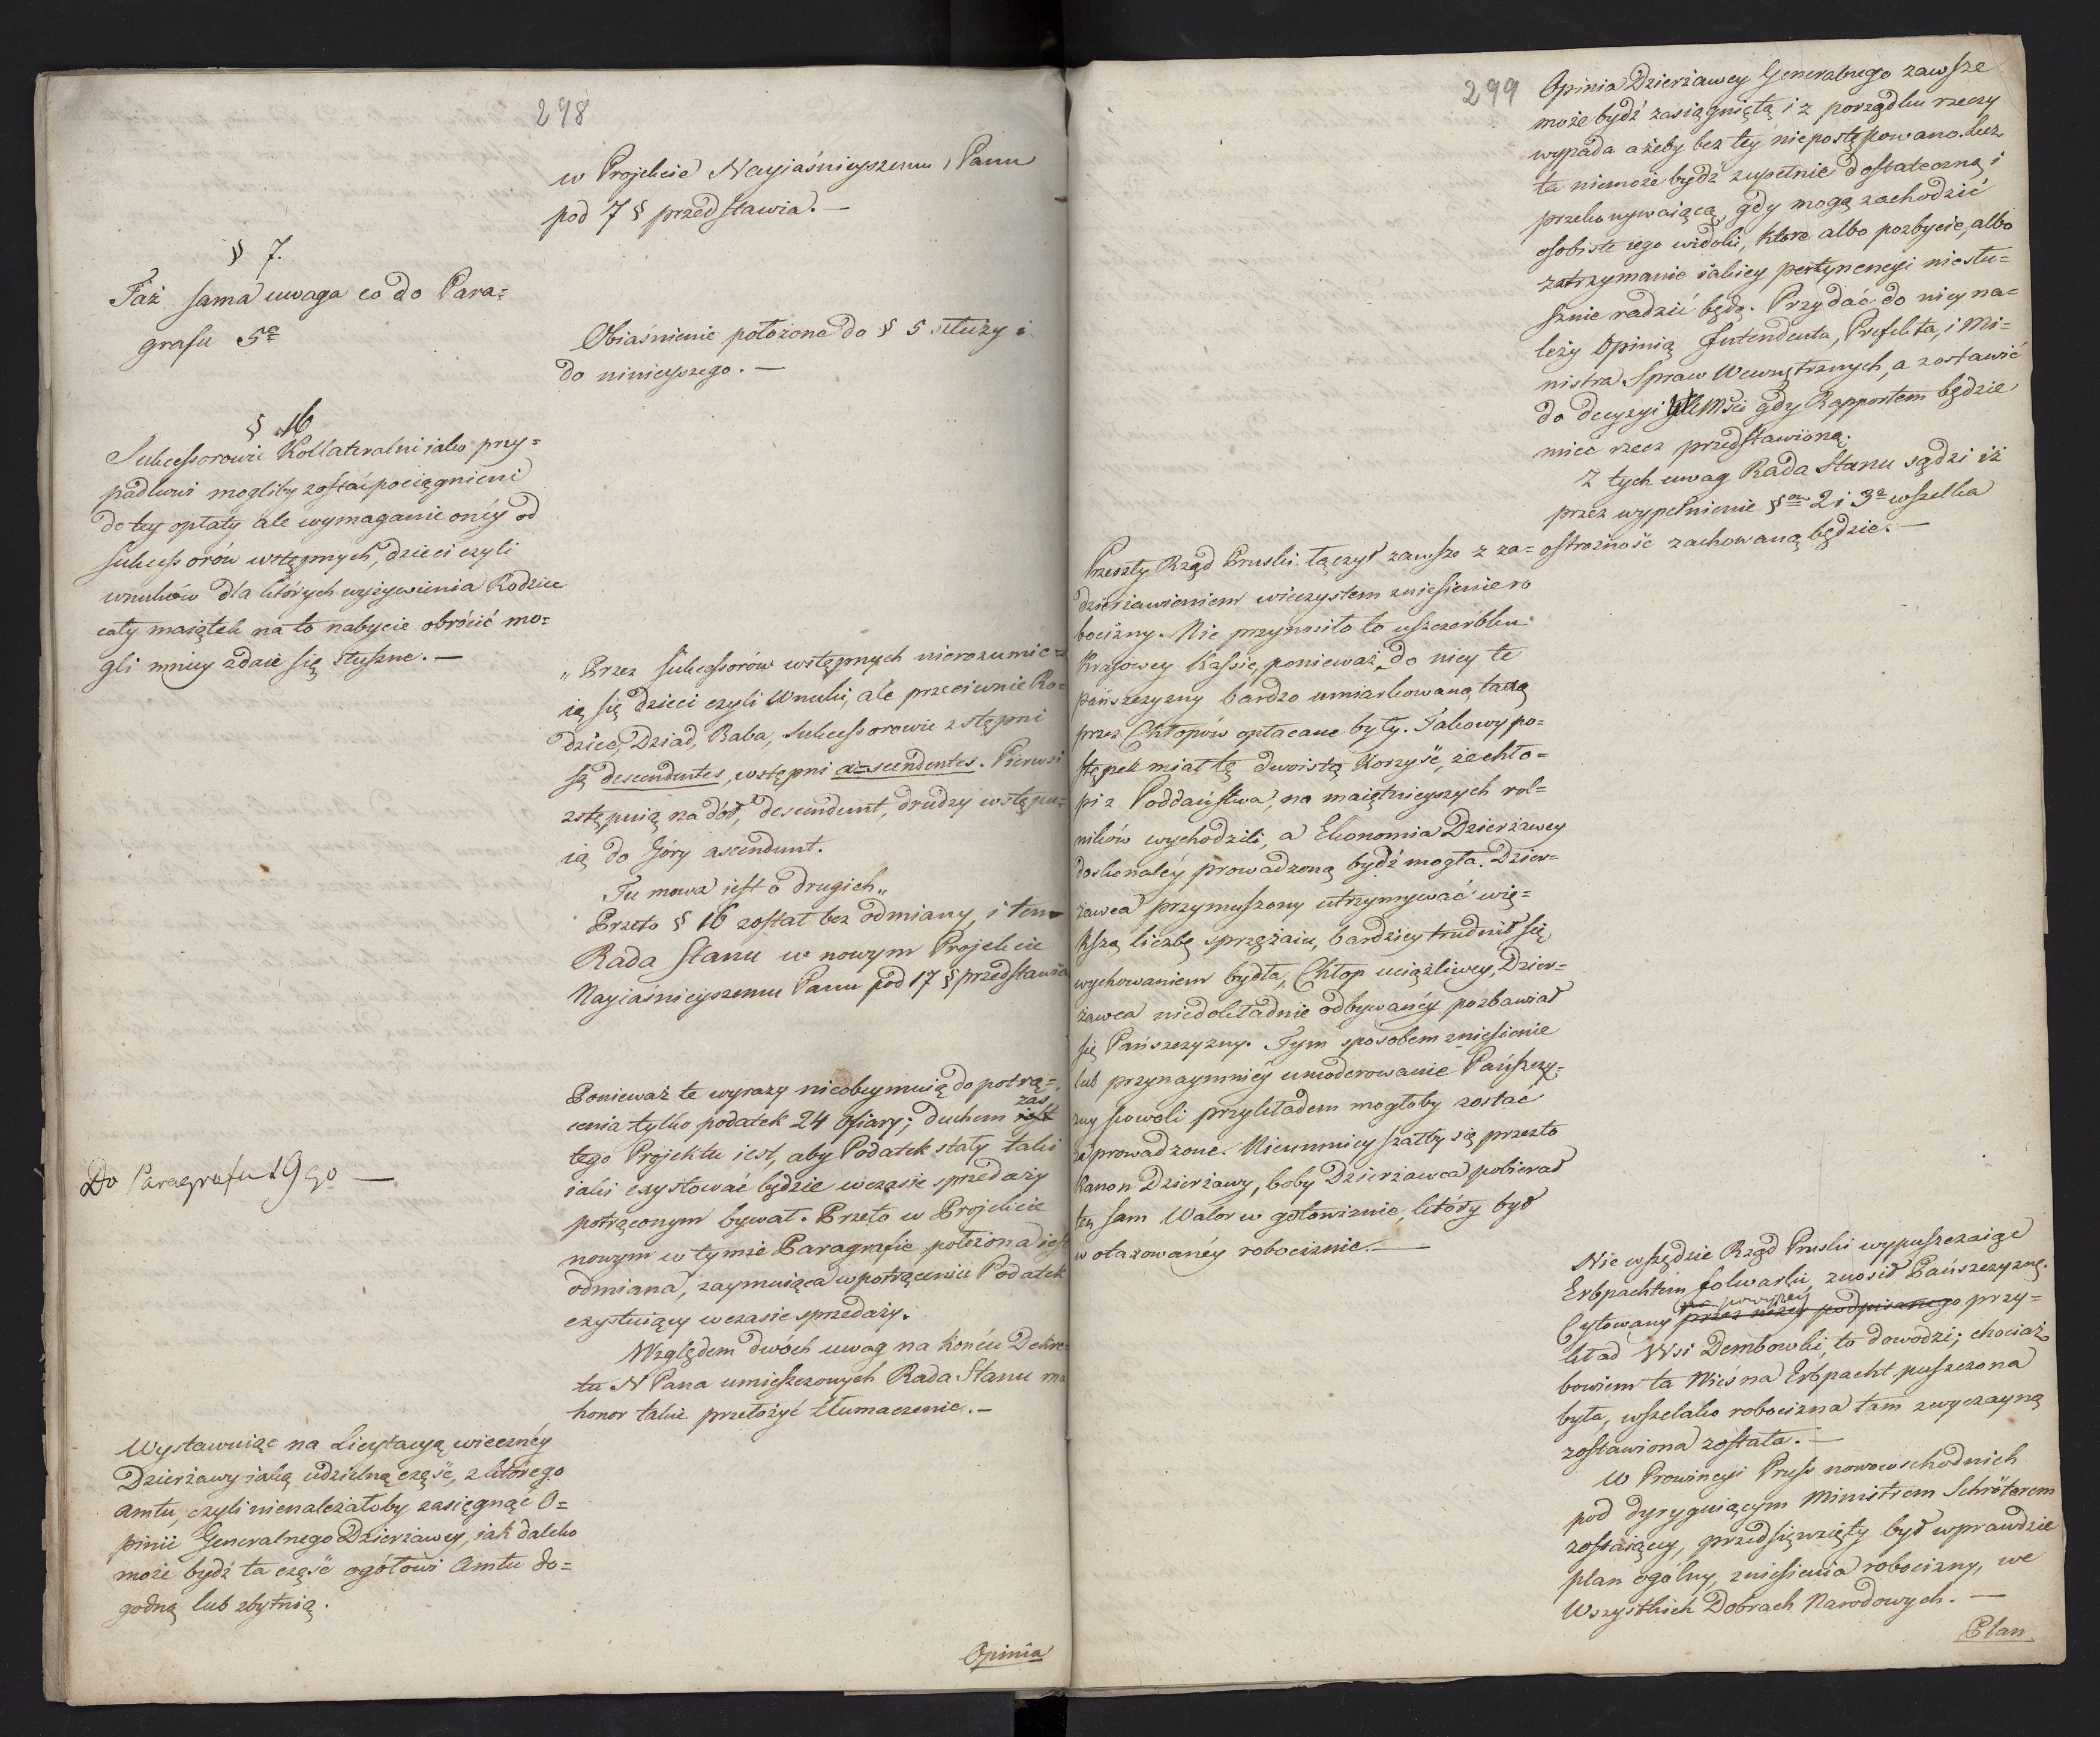 298
w Projekcie Nayjaśnieyszemu Panu
pod 7 § przedstawia. —
§ 7.
Taż sama uwaga co do Para=
grafu 5º
Obiaśnienie położone do § 5 służy i
do ninieyszego. —
§ 16
Sukcessorowie Kollateralni iako przy=
padkowi mogliby zostać pociągnieni
do tey opłaty ale wymaganie onéy od
sukcessorów wstępnych, dzieci czyli
wnuków dla których wyżywienia Rodzice
cały maiątek na to nabycie obrócić mo=
gli mniey zdaie się słuszne. —
„Przez sukcessorów wstępnych nierozumie=
ią się dzieci czyli Wnuki, ale przeciwnie Ro=
dzice, Dziad, Baba, sukcessorowie zstępni
są descendentes, wstępni ascendentes. Pierwsi
zstępuią na dół, descendunt, drudzy wstępu=
ią do góry ascendunt.
Tu mowa jest o drugich„
Przeto § 16 został bez odmiany, i ten
Rada Stanu w nowym Projekcie
Nayiaśnieyszemu Panu pod 17 § przedstawia
Do Paragrafu 19go —
Ponieważ te wyrazy nieobeymuią do potrą=
cenia tylko podatek 24 Ofiary; duchem zas
tego Projektu iest, aby Podatek stały taki
iaki exystować będzie wczasie sprzedaży
potrąconym bywał. Przeto w Projekcie
nowym w tymże Paragrafie położona iest
odmiana, zaymuiąca w potrąceniu Podatek
exystuiący wczasie sprzedaży.
Względem dwóch uwag na końcu Dekre=
tu N Pana umieszczonych Rada Stanu ma
honor takie przełożyć tłumaczenie. —
Wystawuiąc na Licytacyą wieczney
Dzierżawy iaką udzielną część, z którego
Amtu, czyli nienależałoby zasięgnąć O=
pinii Generalnego Dzierżawcy, iak daleko
może bydź ta część ogółowi Amtu do=
godną lub zbytnią.
Opinia
299
Opinia Dzierżawcy Generalnego zawsze
może bydź zasiągniętą i z porządku rzeczy
wypada ażeby bez tey niepostępowano. Lecz
ta niemoże bydź zupełnie dostateczną i
przekonywaiącą, gdy mogą zachodzić
osobiste iego widoki, które albo pozbycie, albo
zatrzymanie iakiey pertynencyi niesłu=
sznie radzić będą. Przydać do niey na=
leży Opinią Intendenta, Prefekta, i Mi=
nistra Spraw Wewnętrznych, a zostawić
do decyzyi WKMści gdy Rapportem będzie
mieć rzecz przedstawioną.
Z tych uwag Rada Stanu sądzi iż
przez wypełnienie §ow 2 i 3º wszelka
ostrożność zachowaną będzie. —
Przeszły Rząd Pruski łączył zawsze z za=
dzierżawieniem wieczystem zniesienie ro
bocizny. Nie przynosiło to uszczerbku
Krajowey Kassie, ponieważ do niey te
pańszczyzny bardzo umiarkowaną taxą
przez Chłopów opłacane były. Takowy po=
stępek miał tę dwoistą korzyść, że chło=
pi z Poddaństwa, na maiętnieyszych rol=
ników wychodzili, a Ekonomia Dzierżawcy
doskonaléy prowadzoną bydź mogła. Dzier=
żawca przymuszony utrzymywać wię=
kszą liczbę sprzężaiu, bardziey trudnił się
wychowaniem bydła, Chłop uciążliwey, Dzier=
żawca niedokładnie odbywanéy pozbawiał
się Pańszczyzny. Tym sposobem zniesienie
lub przynaymniéy umoderowanie Pańszczy=
zny powoli przykładem mogłoby zostać
zaprowadzone. Nieumnieyszałby się przezto
kanon Dzierżawy, boby Dzierżawca pobierał
ten sam Walor w gotowiznie, który był
w otaxowanéy robociznie. —
Nie wszędzie Rząd Pruski wypuszczaiąc
Erbpachtem folwarki, znosił Pańszczyznę.
Cytowany na powyżey przy=
kład Wsi Dembowki, to dowodzi; chociaż
bowiem ta Wieś na Erbpacht puszczona
była, wszelako robocizna tam zwyczayną
zostawiona została. —
W Prowincyi Pruss nowowschodnich
pod dyryguiącym Ministrem Schröterem
zostaiącey, przedsięwzięty był wprawdzie
plan ogólny, zniesienia robocizny, we
Wszystkich Dobrach Narodowych. —
Plan